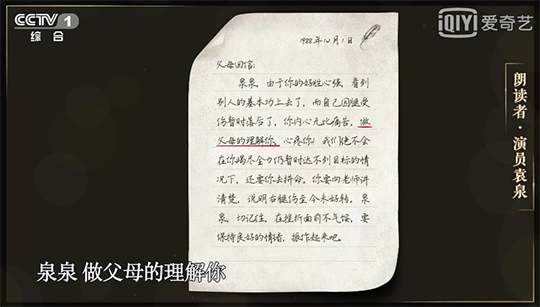 CCTV 1
综合
iQIYI 爱奇艺
朗读者·演员袁泉
1988年12月1日
父母回信:
泉泉、由于你的好胜心强、看到
别人的基本功上去了，而自己因腿受
伤暂时落后了，你内心无比痛苦，做
父母的理解你、心疼你！我们绝不会
在你竭尽全力仍暂时达不到目标的情
况下，还要你去拼命，你要向老师讲
清楚，说明右腿伤至今未好转，泉
泉、切记住，在挫折面前不气馁，要
保持良好的情绪，振作起来吧。
泉泉 做父母的理解你